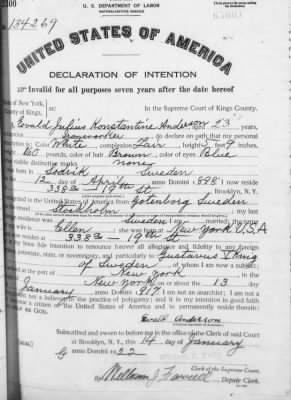 U. S. DEPARTMENT OF LABOR
NATURALIZATION SERVICE
134269
UNITED STATES OF AMERICA
DECLARATION OF INTENTION
Invalid for all purposes seven years after the date hereof
State of New York,
County of Kings,
In the Supreme Court of Kings County.
Evald Julius Konstantine Anderson, aged 23 years,
occupation Ironworker, do declare on oath that my personal
description is: Color White, complexion Fair, height 5 feet 9 inches,
weight 160 pounds, color of hair Brown, color of eyes Blue
other visible distinctive marks none
born in Sweden
on the 12 day of April, anno Domini 1898; I now reside
at 338a - 19th St., Brooklyn, N. Y.
emigrated to the United States of America from Gotenborg Sweden
my last
Stockholm Sweden
wife is Ellen; she was born at New York U.S.A
338a - 19th St
bona fide intention to renounce forever all allegiance and fidelity to any foreign
prince, potentate, state, or sovereignty, and particularly to Gustavus V King
of Sweden, of whom I am now a subject;
at the port of New York, in the
New York, on or about the 13 day
January, anno Domini 1917; I am not an anarchist; I am not a
polygamist nor a believer in the practice of polygamy; and it is my intention in good faith
to become a citizen of the United States of America and to permanently reside therein:
HELP ME GOD.
Evald Anderson
Subscribed and sworn to before me in the office of the Clerk of said Court
at Brooklyn, N. Y., this 14 day of January
anno Domini 1922
Clerk of the Supreme Court.
By William J. Farrell, Deputy Clerk.